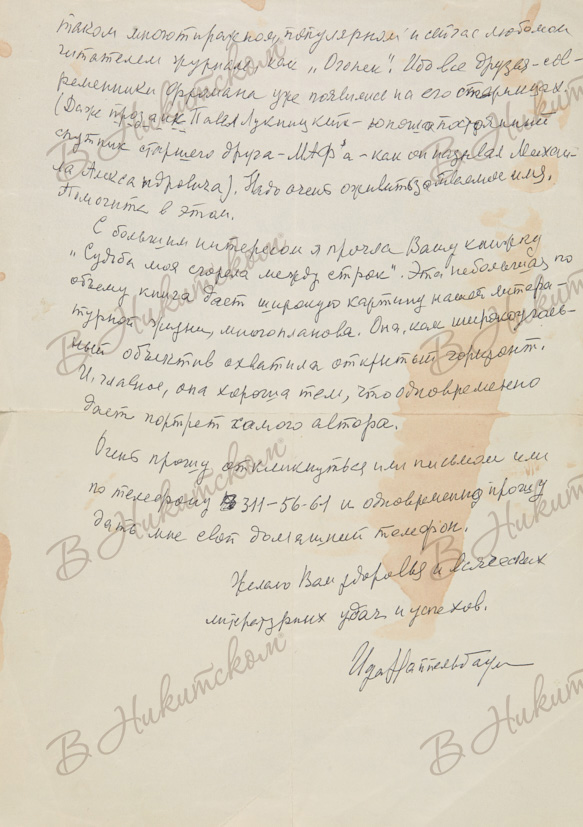 таком многотиражном, популярном и сейчас любимом
читателем журнале как „Огонек“. Ибо все друзья-сов-
ременники Фромана уже появились на его страницах
(Даже прозаик Павел Лукницкий – юноша постоянный
спутник старшего друга – МАФ'а – как он называл Михаи-
ла Александровича). Надо очень оживить забываемое имя.
Помогите в этом.
С большим интересом я прочла Вашу книжку
„Судьба моя сгорела между строк“. Эта небольшая по
объему книга дает широкую картину нашей литера-
турной жизни, многопланова. Она, как широкоуголь-
ный объектив охватила открытый горизонт.
И, главное, она хороша тем, что одновременно
дает портрет самого автора.
Очень прошу откликнуться или письмом или
по телефону 311-56-61 и одновременно прошу
дать мне свой домашний телефон.
Желаю Вам здоровья и всяческих
литературных удач и успехов.
Ида Наппельбаум
В. Никитском
В. Никитском
В. Никитском
В. Никитском
В. Никитском
В. Никитском
В. Никитском
В. Никитском